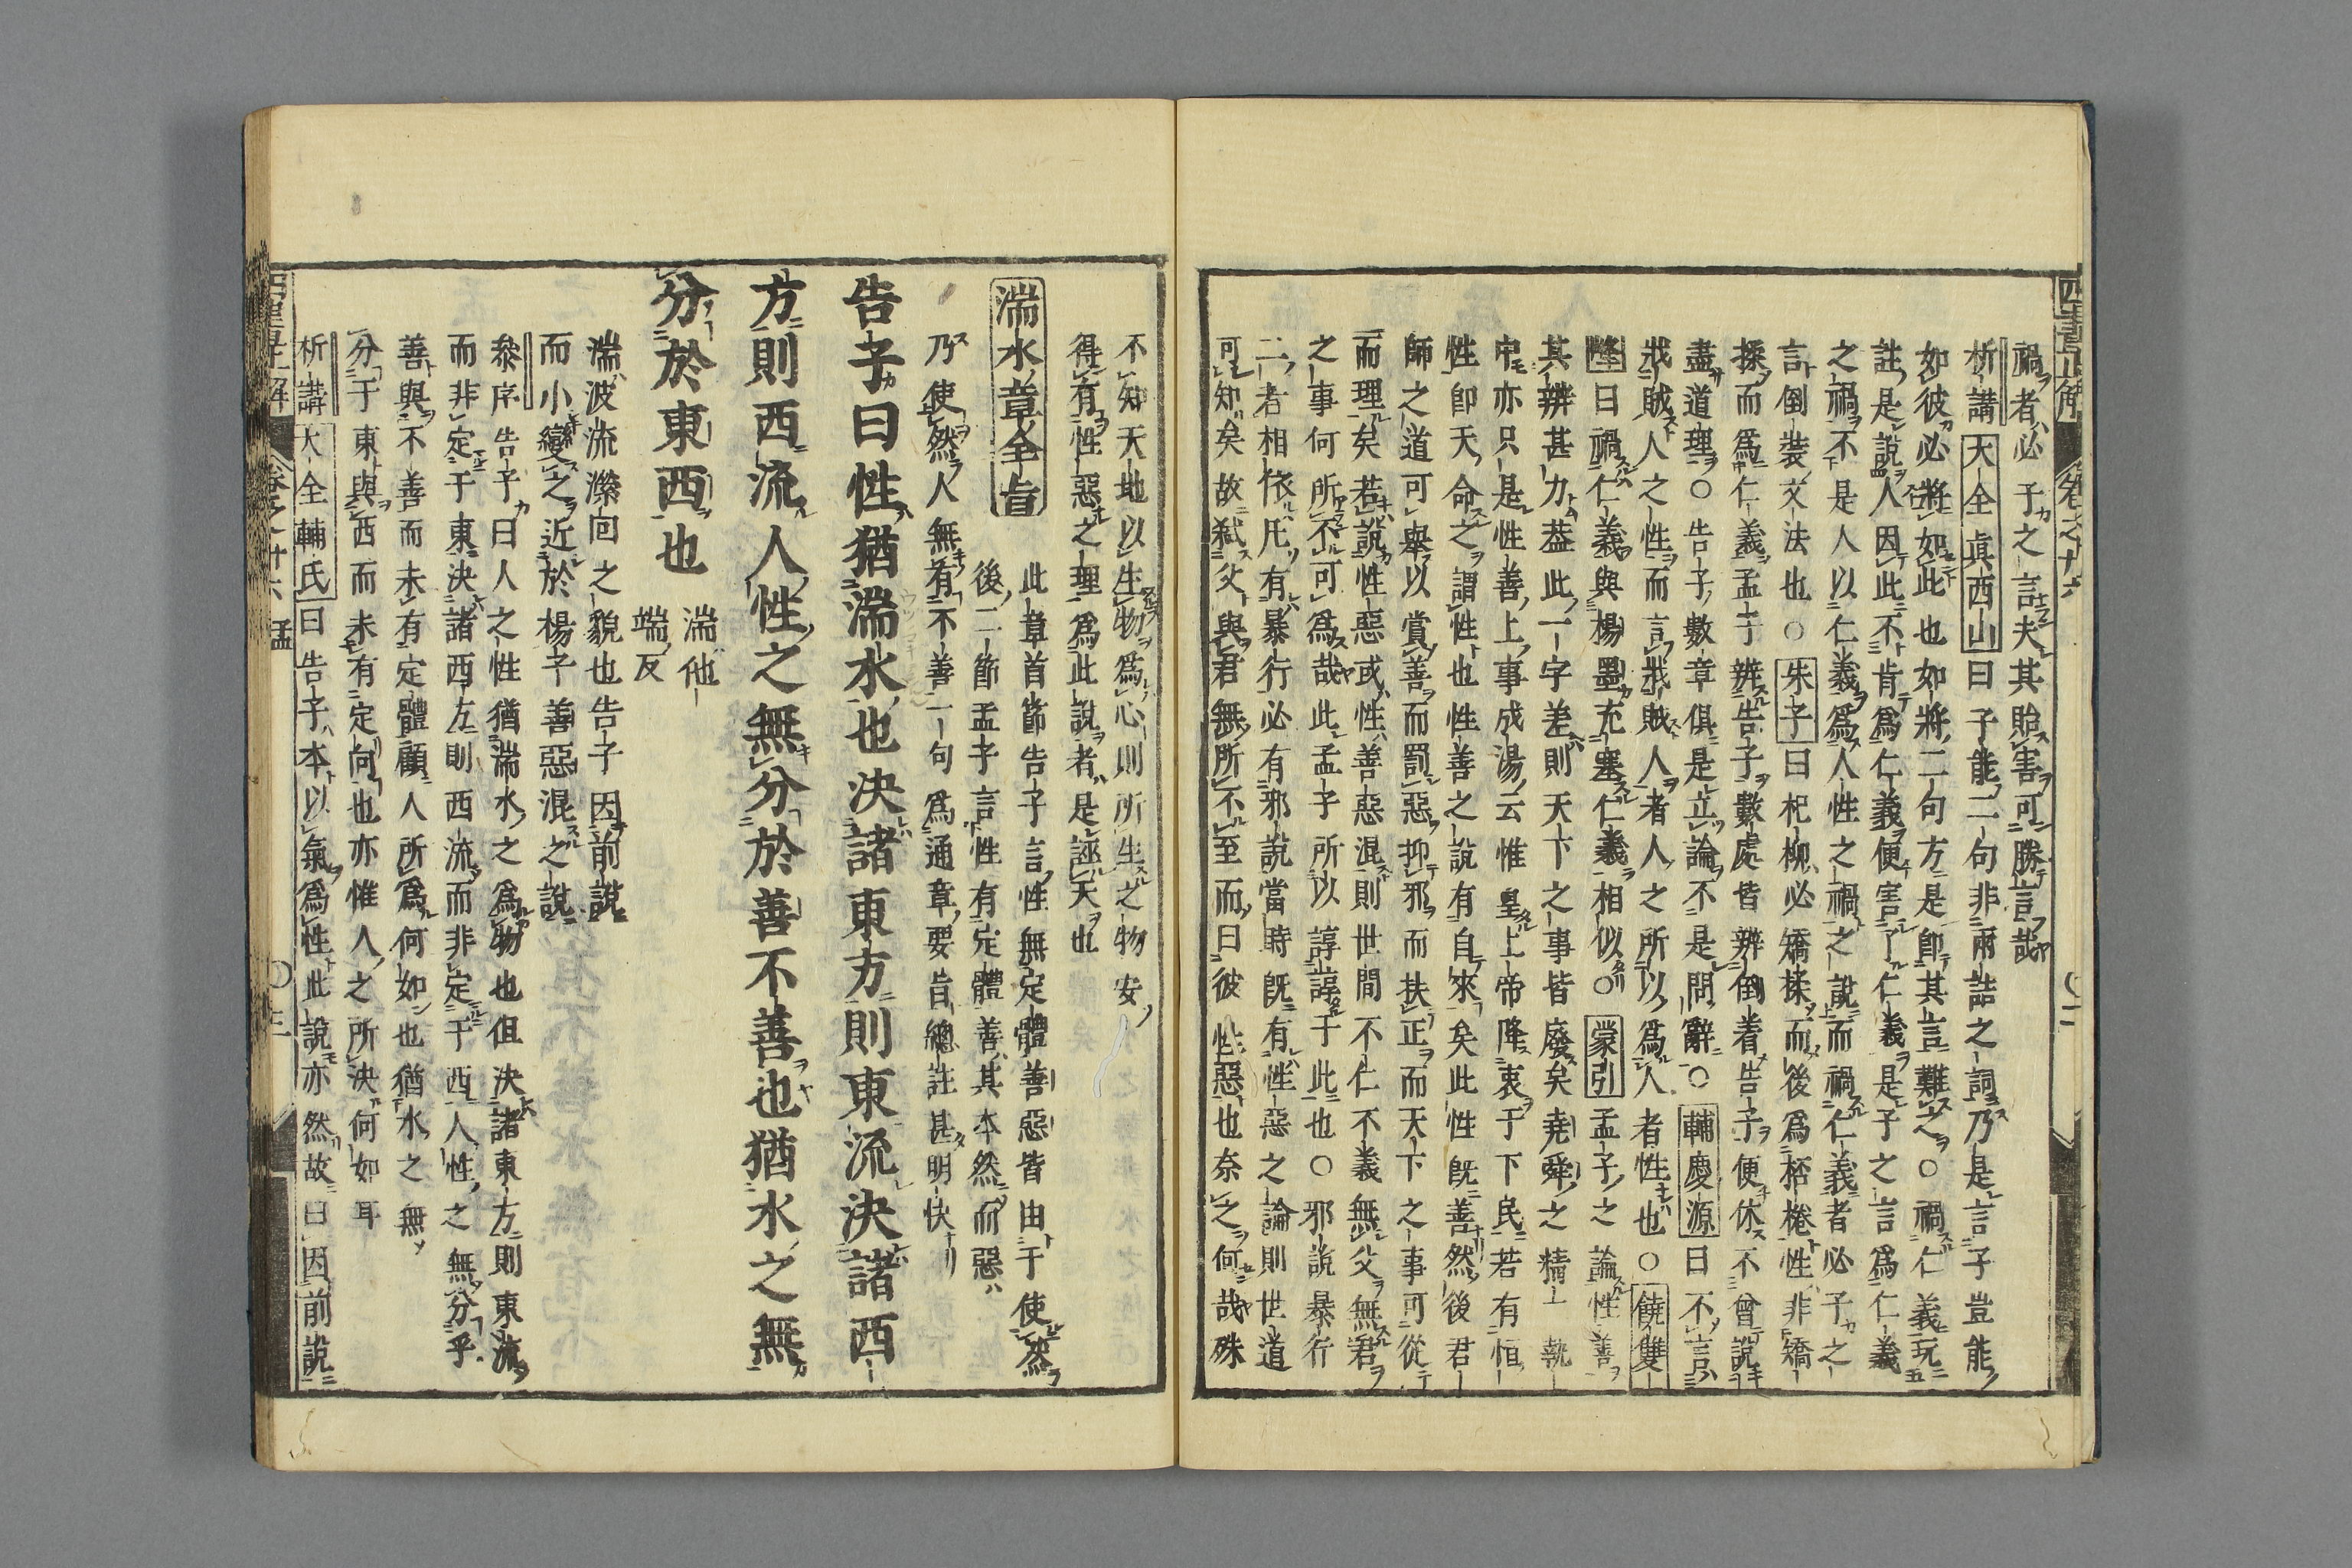 四書正解 卷之十六 〇二
禍者必子之言夫其貽害可勝言哉
析講 大全眞西山曰子能二句非兩詰之詞乃是言子豈能
如彼必將如此也如將二句方是卽其言難之〇禍仁義玩
註是說人因此不肯爲仁義便害了仁義是子之言爲仁義
之禍不是人以仁義爲人性之禍之說而禍仁義者必子之
言倒裝文法也〇朱子曰杞柳必矯揉而後爲桮棬性非矯
揉而爲仁義孟子辨告子數處皆辨倒着告子便休不曾說
盡道理〇告子數章俱是立論不是問辭〇輔慶源曰不言
戕賊人之性而言戕賊人者人之所以爲人者性也〇饒雙
峰曰禍仁義與楊墨充塞仁義相似〇蒙引孟子之論性善
其辨甚力葢此一字差則天下之事皆廢矣堯舜之精一執
中亦只是性善上事成湯云惟皇上帝降衷于下民若有恒
性卽天命之謂性也性善之說有自來矣此性旣善然後君
師之道可舉以賞善而罰惡抑邪而扶正而天下之事可從
而理矣若說性惡或性善惡混則世間不仁不義無父無君
之事何所不可爲哉此孟子所以諄諄于此也〇邪說暴行
二者相依凡有暴行必有邪說當時旣有性惡之論則世道
可知矣故弑父與君無所不至而曰彼性惡也奈之何哉殊
不知天地以生物爲心則所生之物安
得有性惡之理爲此說者是誣天也
湍水章全旨 此章首節告子言性無定體善惡皆由于使然
後二節孟子言性有定體善其本然而惡
乃使然人無有不善一句爲通章要旨總註甚明快
告子曰性猶湍水也決諸東方則東流決諸西
方則西流人性之無分於善不善也猶水之無
分於東西也 湍他
端反
湍波流瀠回之貌也告子因前說
而小變之近於楊子善惡混之說
參序告子曰人之性猶湍水之爲物也但決諸東方則東流
而非定于東決諸西方則西流而非定于西人性之無分乎
善與不善而未有定體顧人所爲何如也猶水之無
分于東與西而未有定向也亦惟人之所決何如耳
析講 大全輔氏曰告子本以氣爲性此說亦然故曰因前說
四書正解 卷之十六 孟 〇三